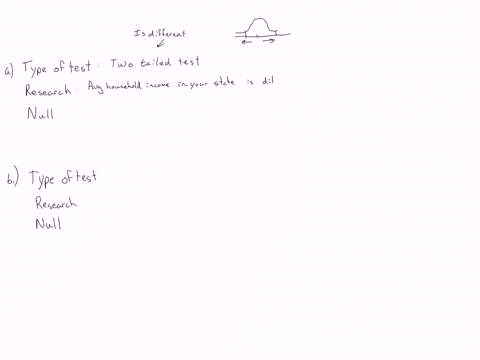 Is different
a) Type of test : Two tailed test
Research : Avg household income in your state is dif
Null
b.) Type of test
Research
Null